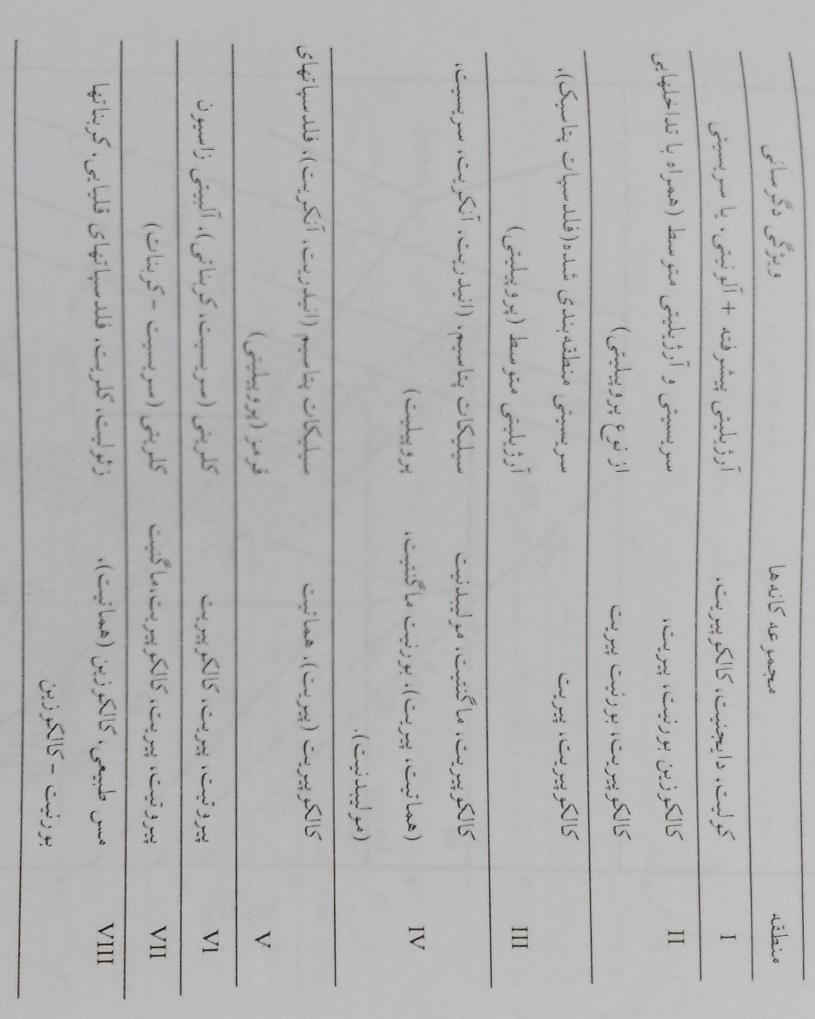 منطقه مجموعه کانه‌ها ویژگی دگرسانی
I کولیت، دایجنیت، کالکوپیریت، آرژیلیتی پیشرفته + آلونیتی، یا سریسیتی
II کالکوزین بورنیت، پیریت، سریسیتی و آرژیلیتی متوسط (همراه با تداخلهایی
کالکوپیریت، بورنیت پیریت از نوع پروپیلیتی)
کالکوپیریت، پیریت سریسیتی منطقه‌بندی شده (فلدسپات پتاسیک)،
III آرژیلیتی متوسط (پروپیلیتی)
کالکوپیریت، ماگنتیت، مولیبدنیت سیلیکات پتاسیم، (انیدریت، آنکریت، سریسیت،
IV (هماتیت، پیریت)، بورنیت ماگنتیت، پروپیلیت)
(مولیبدنیت).
کالکوپیریت (پیریت)، هماتیت سیلیکات پتاسیم (انیدریت، آنکریت)، فلدسپاتهای
V قرمز (پروپیلیتی)
VI پیروتیت، پیریت، کالکوپیریت کلریتی (سریسیت، کربناتی)، آلبیتی زاسیون
VII پیروتیت، پیریت، کالکوپیریت، ماگنتیت کلریتی (سریسیت - کربنات)
VIII مس طبیعی، کالکوزین (هماتیت)، زئولیت، کلریت، فلدسپاتهای قلیایی، کربناتها
بورنیت - کالکوزین